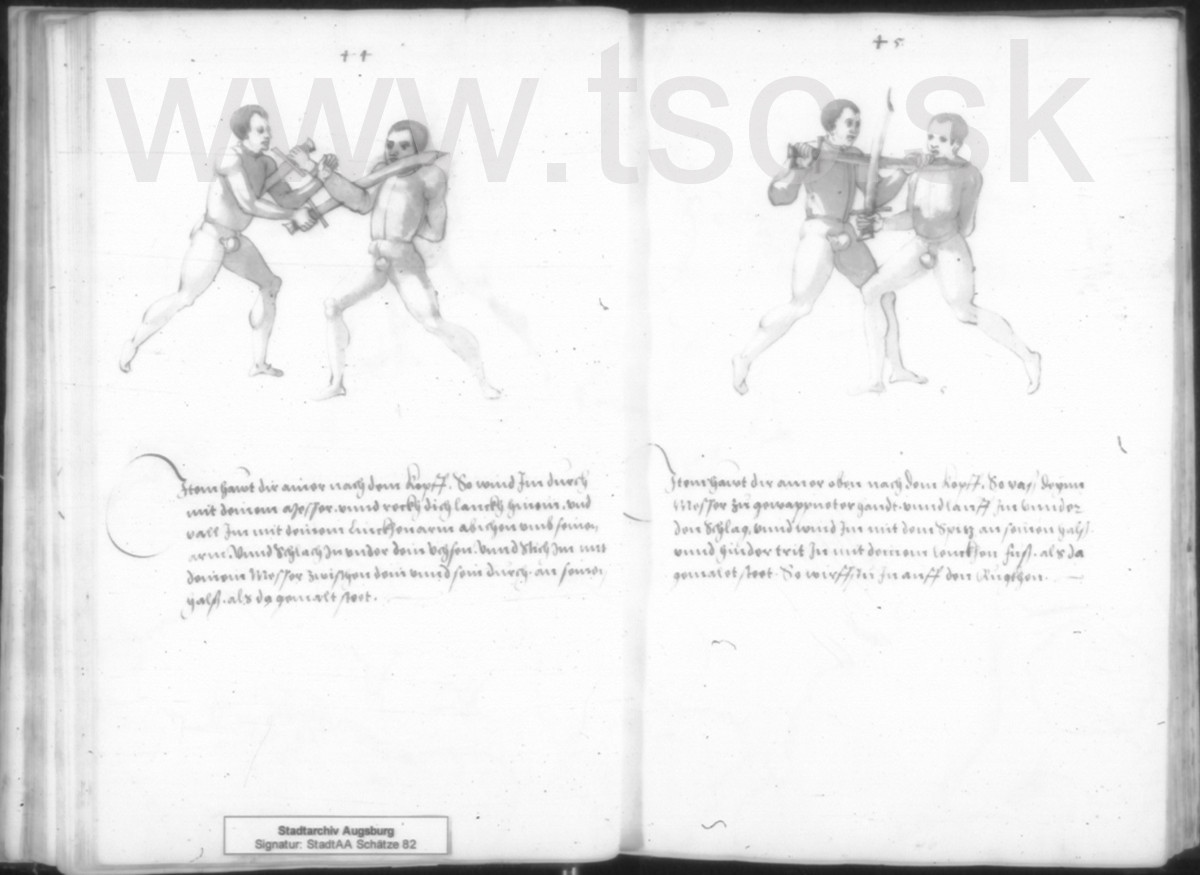 44
Item hawt dir ainer nach dem kopff. So wind Im durch
mit deinem Messer. vnnd reckh dich lanckh hinein. vnd
vall Im mit deinem linckhen arm auschen vmb seinen
arm. Vnnd Schlach In vnder dein Vchsen. Vnnd Stich Im mit
deinem Messer zwischen dein vnnd sein durch an seinen
halß. als da gemalt steet.
45
Item hawt dir ainer oben nach dem kopff. So vaß dein
Messer zu gewappneter handt. vnnd lauff Im vnnder
den Schlag. vnnd wind Im mit dem Spitz an seinen halß
vnnd hinder trit In mit deinem linckhen fuß. als da
gemalet steet. So wirffstu In auff den Rugkhen.
www.tso.sk
Stadtarchiv Augsburg
Signatur: StadtAA Schätze 82